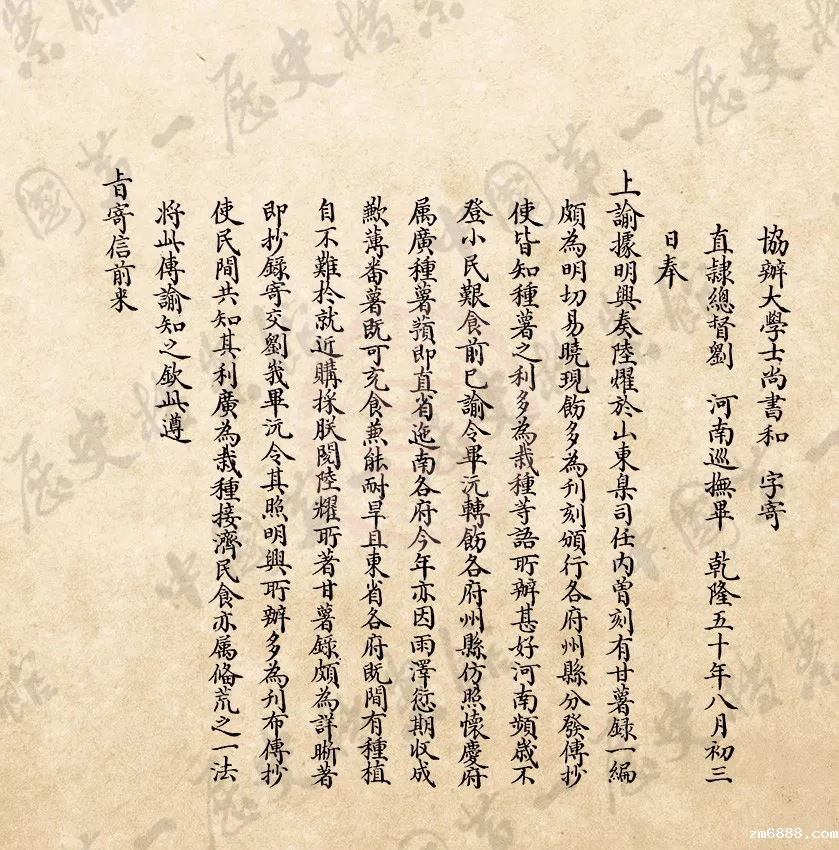 協辦大學士尚書和 字寄
直隸總督劉 河南巡撫畢 乾隆五十年八月初三
日奉
上諭據明興奏陸燿於山東臬司任內曾刻有甘薯録一編
頗為明切易曉現飭多為刊刻頒行各府州縣分發傳抄
使皆知種薯之利多為栽種等語所辦甚好河南頻歲不
登小民艱食前已諭令畢沅轉飭各府州縣仿照懷慶府
属廣種薯蕷即直省迤南各府今年亦因雨澤愆期收成
歉薄番薯既可充食兼能耐旱且東省各府既間有種植
自不難於就近購採朕閱陸燿所著甘薯録頗為詳晰著
即抄録寄交劉峩畢沅令其照明興所辦多為刊布傳抄
使民間共知其利廣為栽種接濟民食亦属俻荒之一法
將此傳諭知之欽此遵
旨寄信前来
中國第一歷史檔案館
zm6888.com